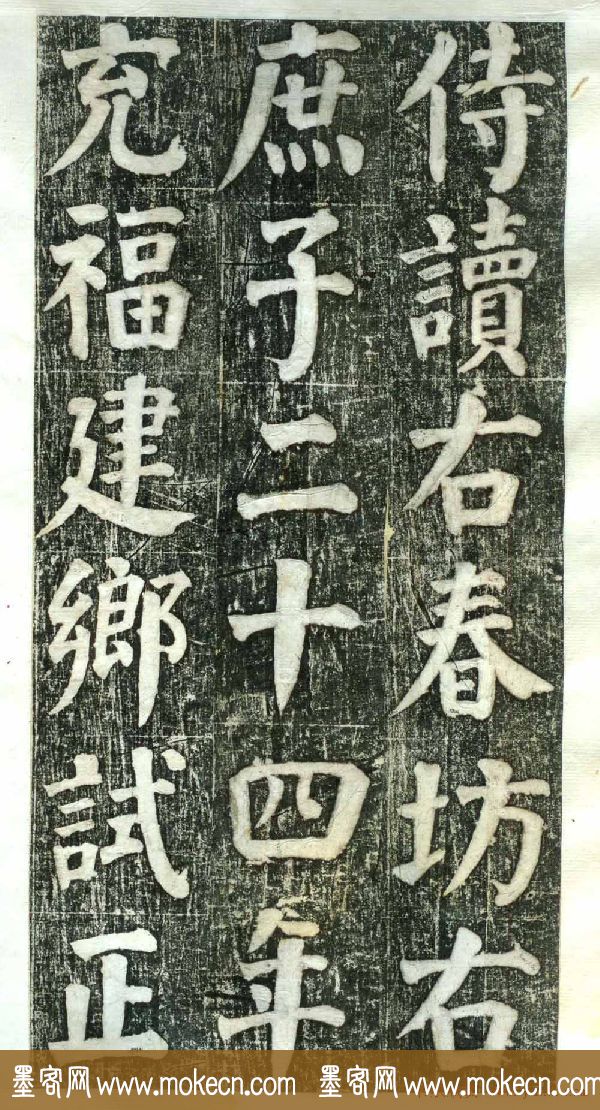 侍讀右春坊右
庶子二十四年
充福建鄉試正
墨客网 www.mokecn.com 墨客网 www.mokecn.com